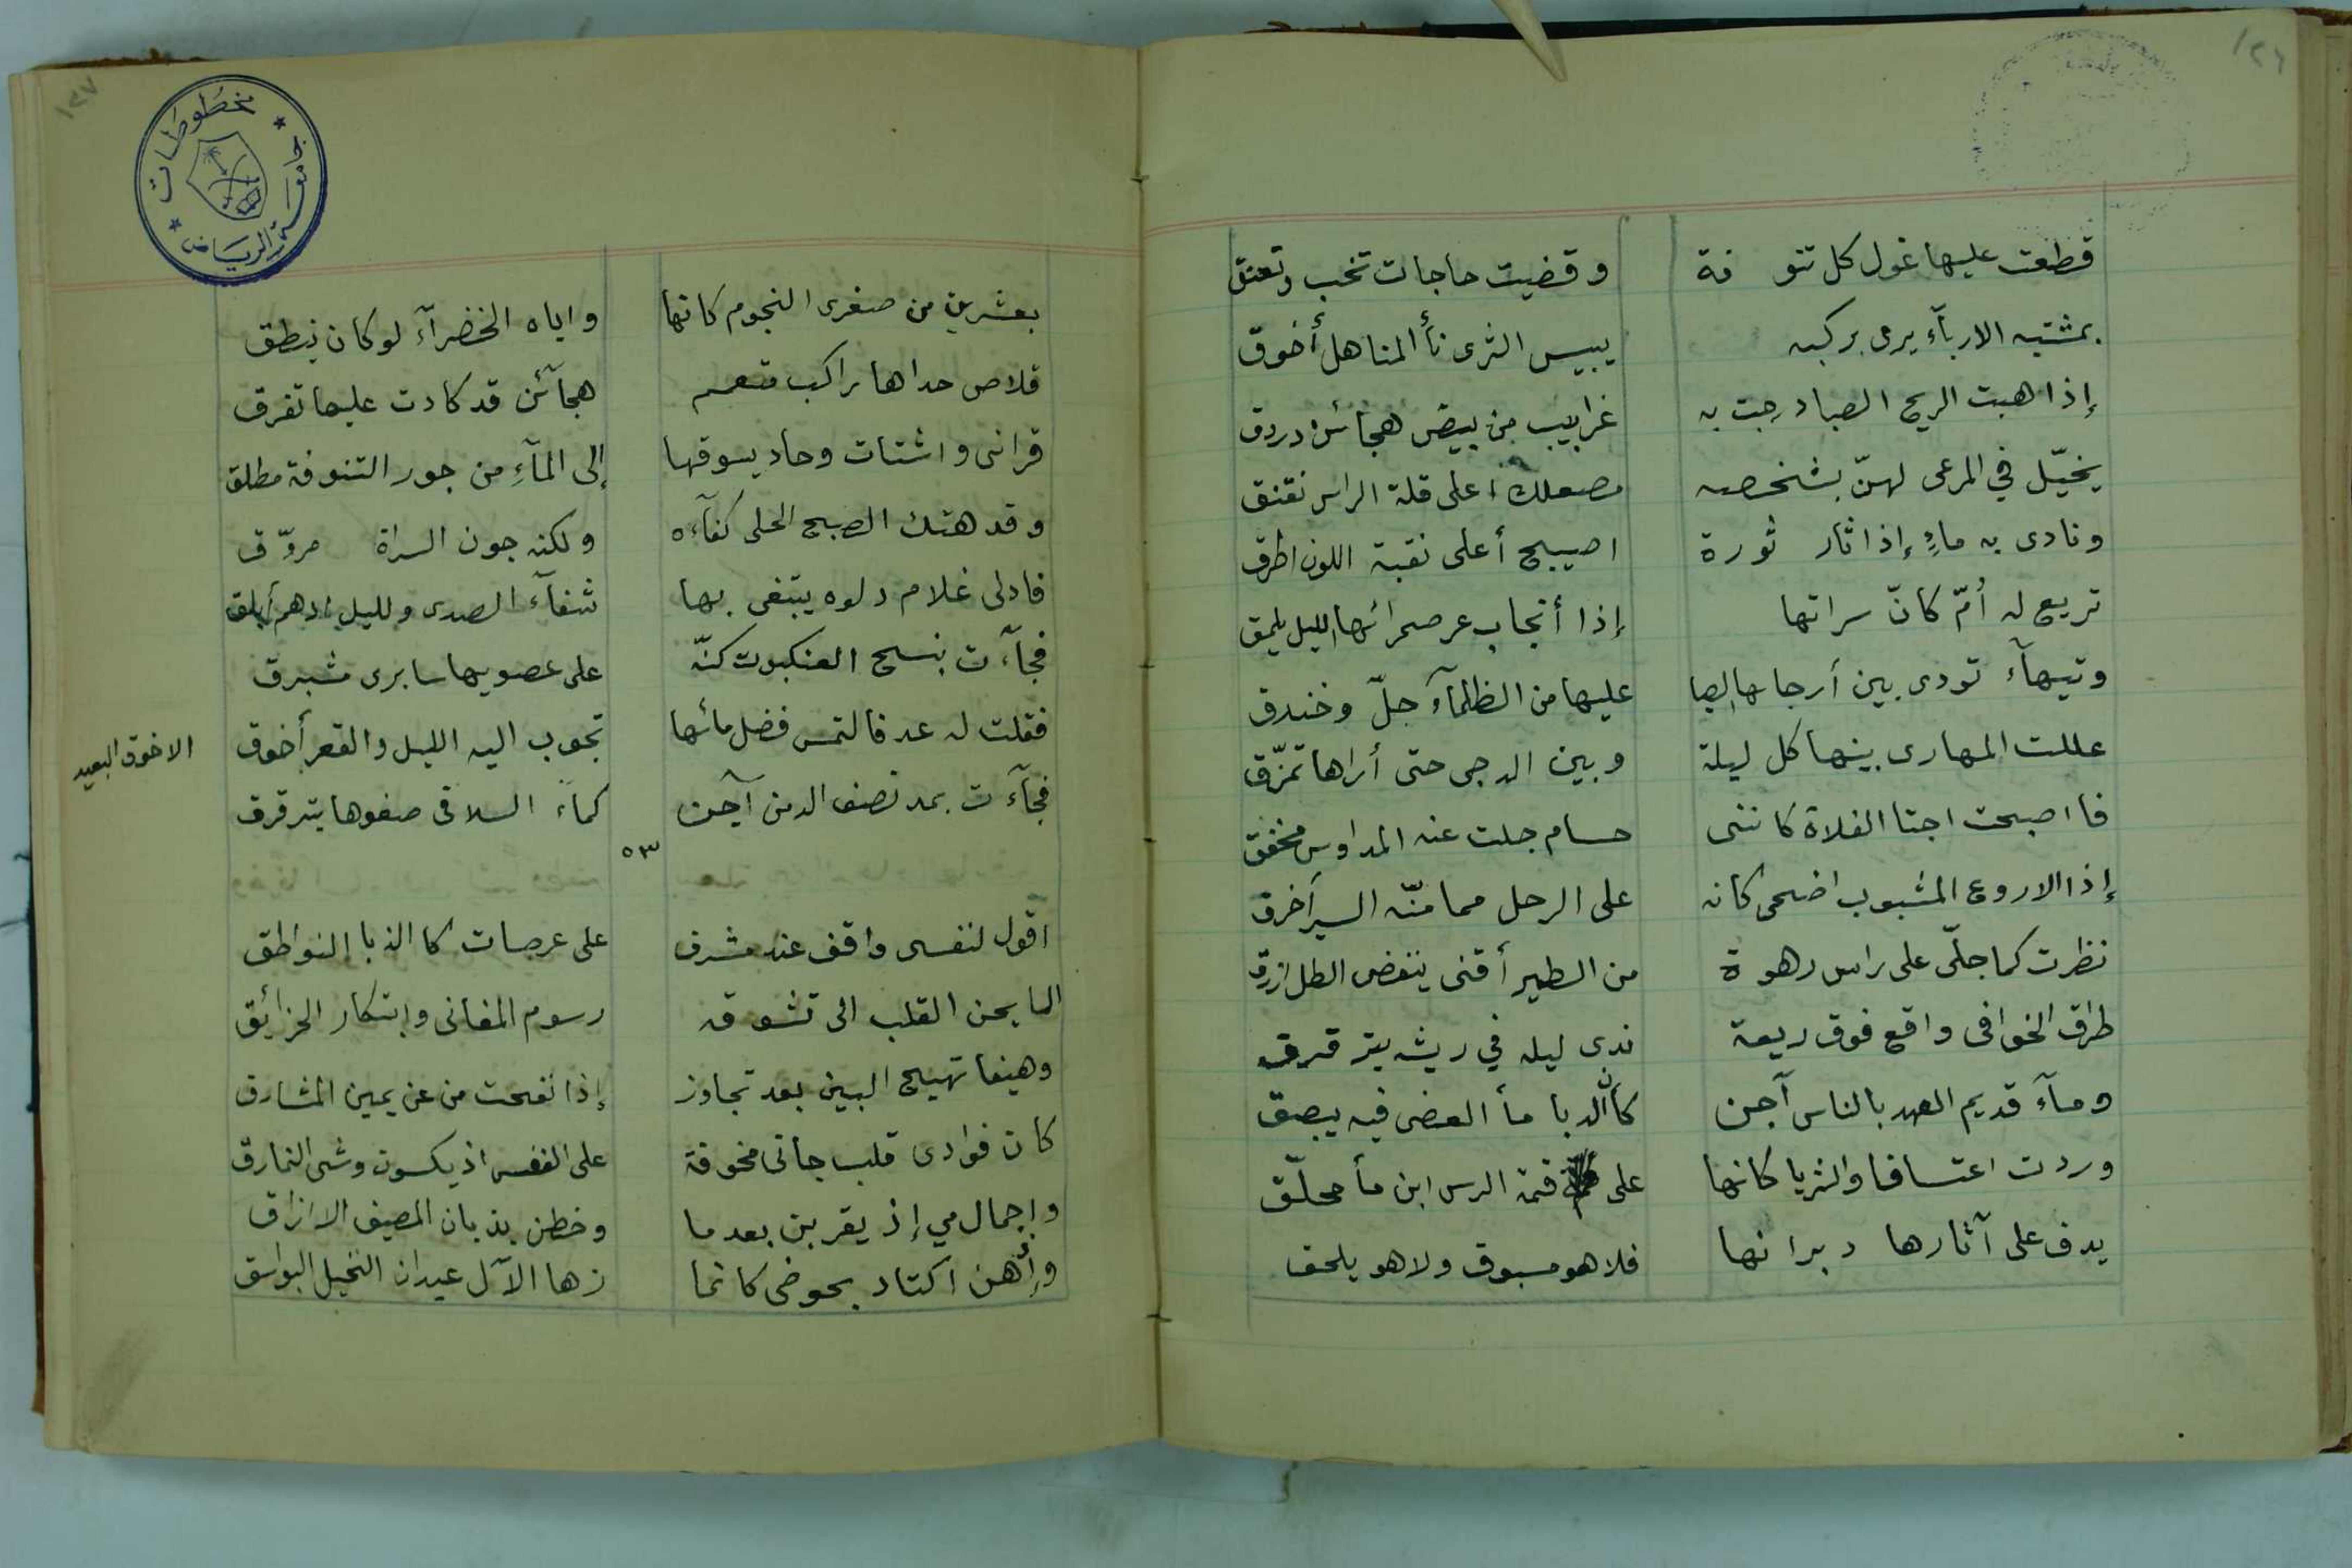 ١٢٦
قطعت عليها غول كل تنو فة وقضيت حاجات تخب وتعنق
بمشتبه الاربآء يرمى بركبه يبيس الثرى نأ المناهل أخوق
إذا هبت الريح الصبا درجت به غرابيب من بيض هجائن دردق
يخيّل في المرعى لهنّ بشخصه مصعلك اعلى قلة الراس نقنق
ونادى به ماءٍ إذا ثار ثورة اصيبح أعلى نقبة اللون اطرق
تريع له أمّ كانّ سراتها إذا أنجاب عن صحرائها الليل يلمق
وتيهآء تودى بين أرجاها الصبا عليها من الظلمآء جلّ وخندق
عللت المهارى بينها كل ليلة وبين الدجى حتى أراها تمزّق
فاصبحت اجتا الفلاة كاننى حسام جلت عنه المداوس مخفق
إذا الاروع المشبوب اضحى كانه على الرحل مما منّه السير أخرق
نظرت كما جلّى على راس رهوة من الطير أقنى ينفض الطل ازرق
طراق الخوافى واقع فوق ريعة ندى ليله في ريشه يترقرق
ومآء قديم العهد بالناس آجن كأن الدبا مأ الغضى فيه يبصق
وردت اعتسافا والثريا كانها على قمة الرس ابن مأ محلّق
يدف على آثارها دبرانها فلا هو مسبوق ولا هو يلحق
١٢٧
مخطوطات
جامعة الرياض
بعشرين من صغرى النجوم كانها واياه الخضرآء لو كان ينطق
قلاص حداها راكب متعمم هجآئن قد كادت عليها تفرق
قرانى واشتات وحاد يسوقها إلى المآءِ من جور التنوفة مطلق
وقد هتك الصبح الجلى كفآءه ولكنه جون السراة مروّق
فادلى غلام دلوه يبتغى بها شفآء الصدى ولليل ادهم أبلق
فجآءت بنسج العنكبوت كنّه على عصويها سابرى مشبرق
فقلت له عد فالتمس فضل مائها تجوب اليه الليل والقعر أخوق
الاخوق البعيد
فجآءت بمد نصف الدمن آجن كماء السلافى صفوها يترقرق
٥٣
اقول لنفسى واقف عند مشرف على عرصات كا الذبا النواطق
الما يحن القلب الى تشوقه رسوم المغانى وابتكار الحزائق
وهيفا تهيج البين بعد تجاوز إذا نفحت من عن يمين المشارق
كان فوادى قلب جانى مخوفة على النفس اذ يكسون وشى النمارق
واجمال مي إذ يقربن بعد ما وخطن بذبان المصيف الازارق
وإأهن اكتاد بحوضى كانما زها الآل عيدان النخيل البواسق